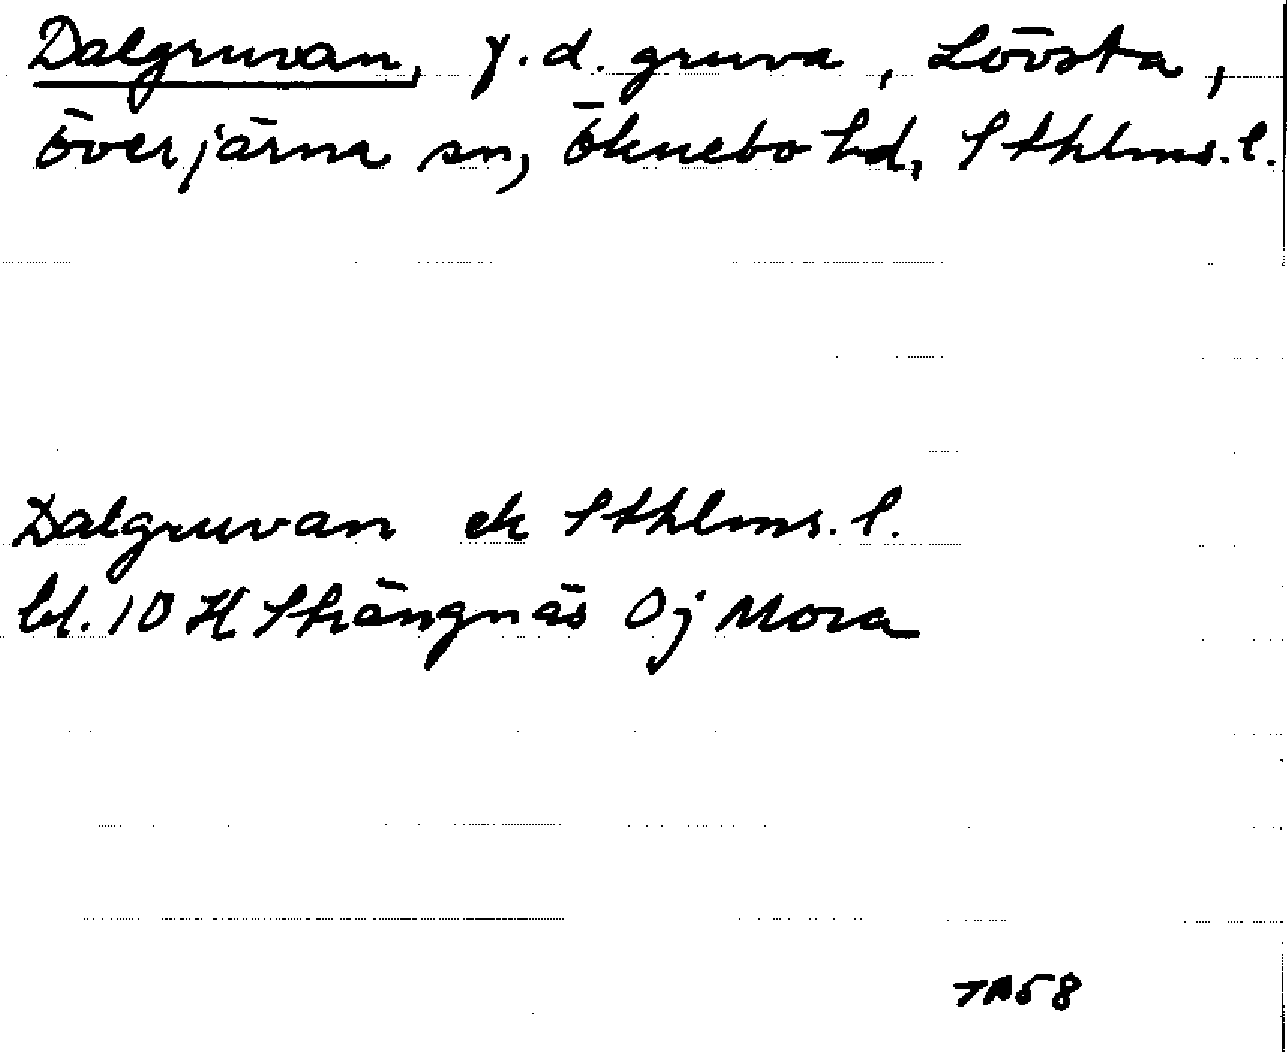 Dalgruvan, f.d. gruva, Lövsta,
Överjärna sn, Öknebo hd, Sthlms.l.
Dalgruvan ek Sthlms.l.
bl. 10 H Strängnäs 0j Mora
TA58